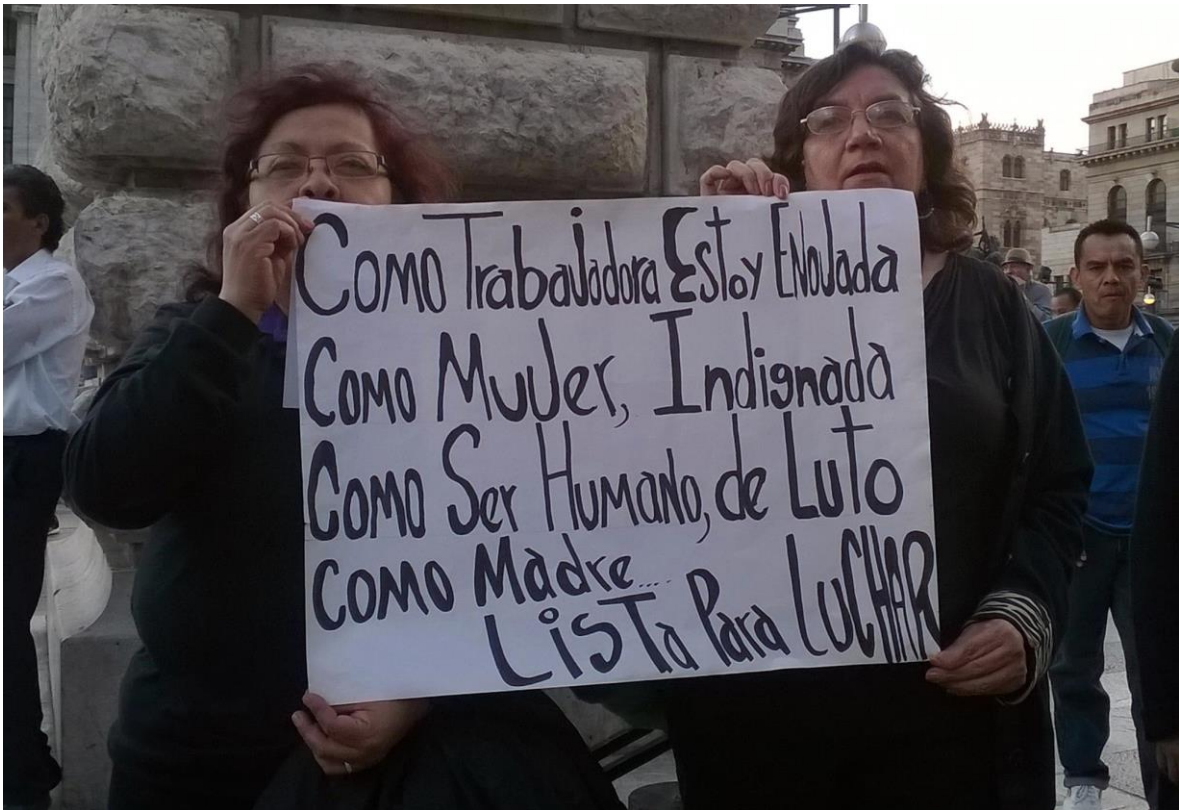 Como Trabajadora Estoy Enojada
Como Mujer, Indignada
Como Ser Humano, de Luto
Como Madre....
Lista Para LUCHAR